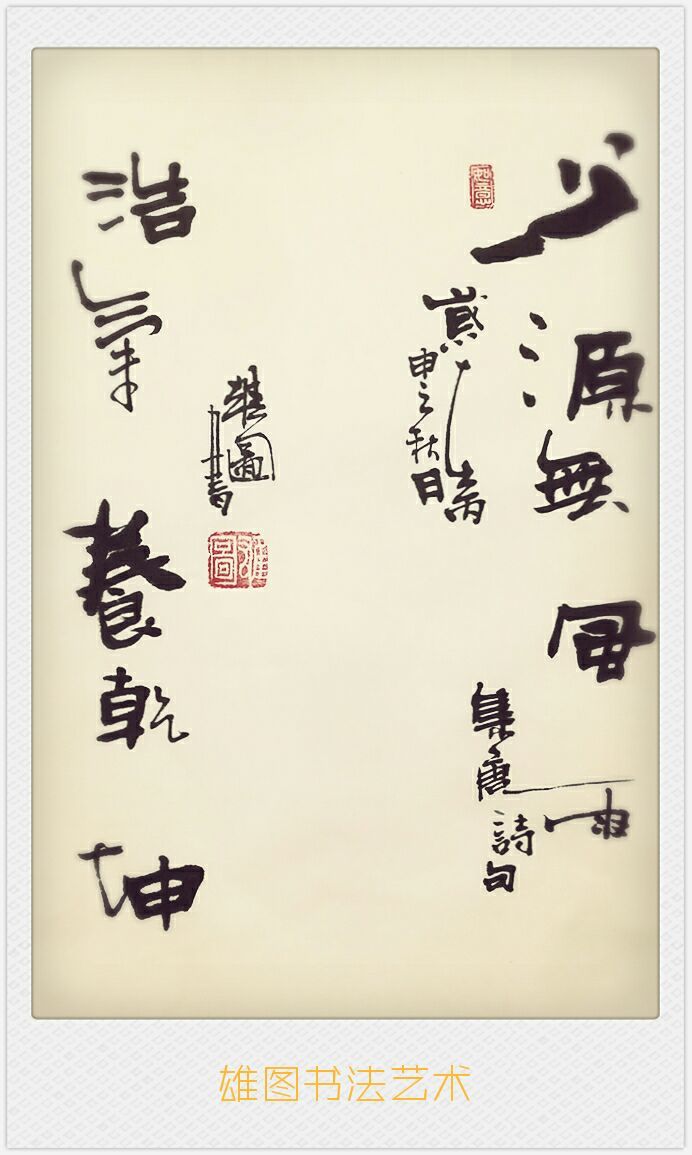 心源無風雨
集唐詩句
如意
歲在丙
申之秋日
浩氣養乾坤
雄圖書
雄圖
雄图书法艺术